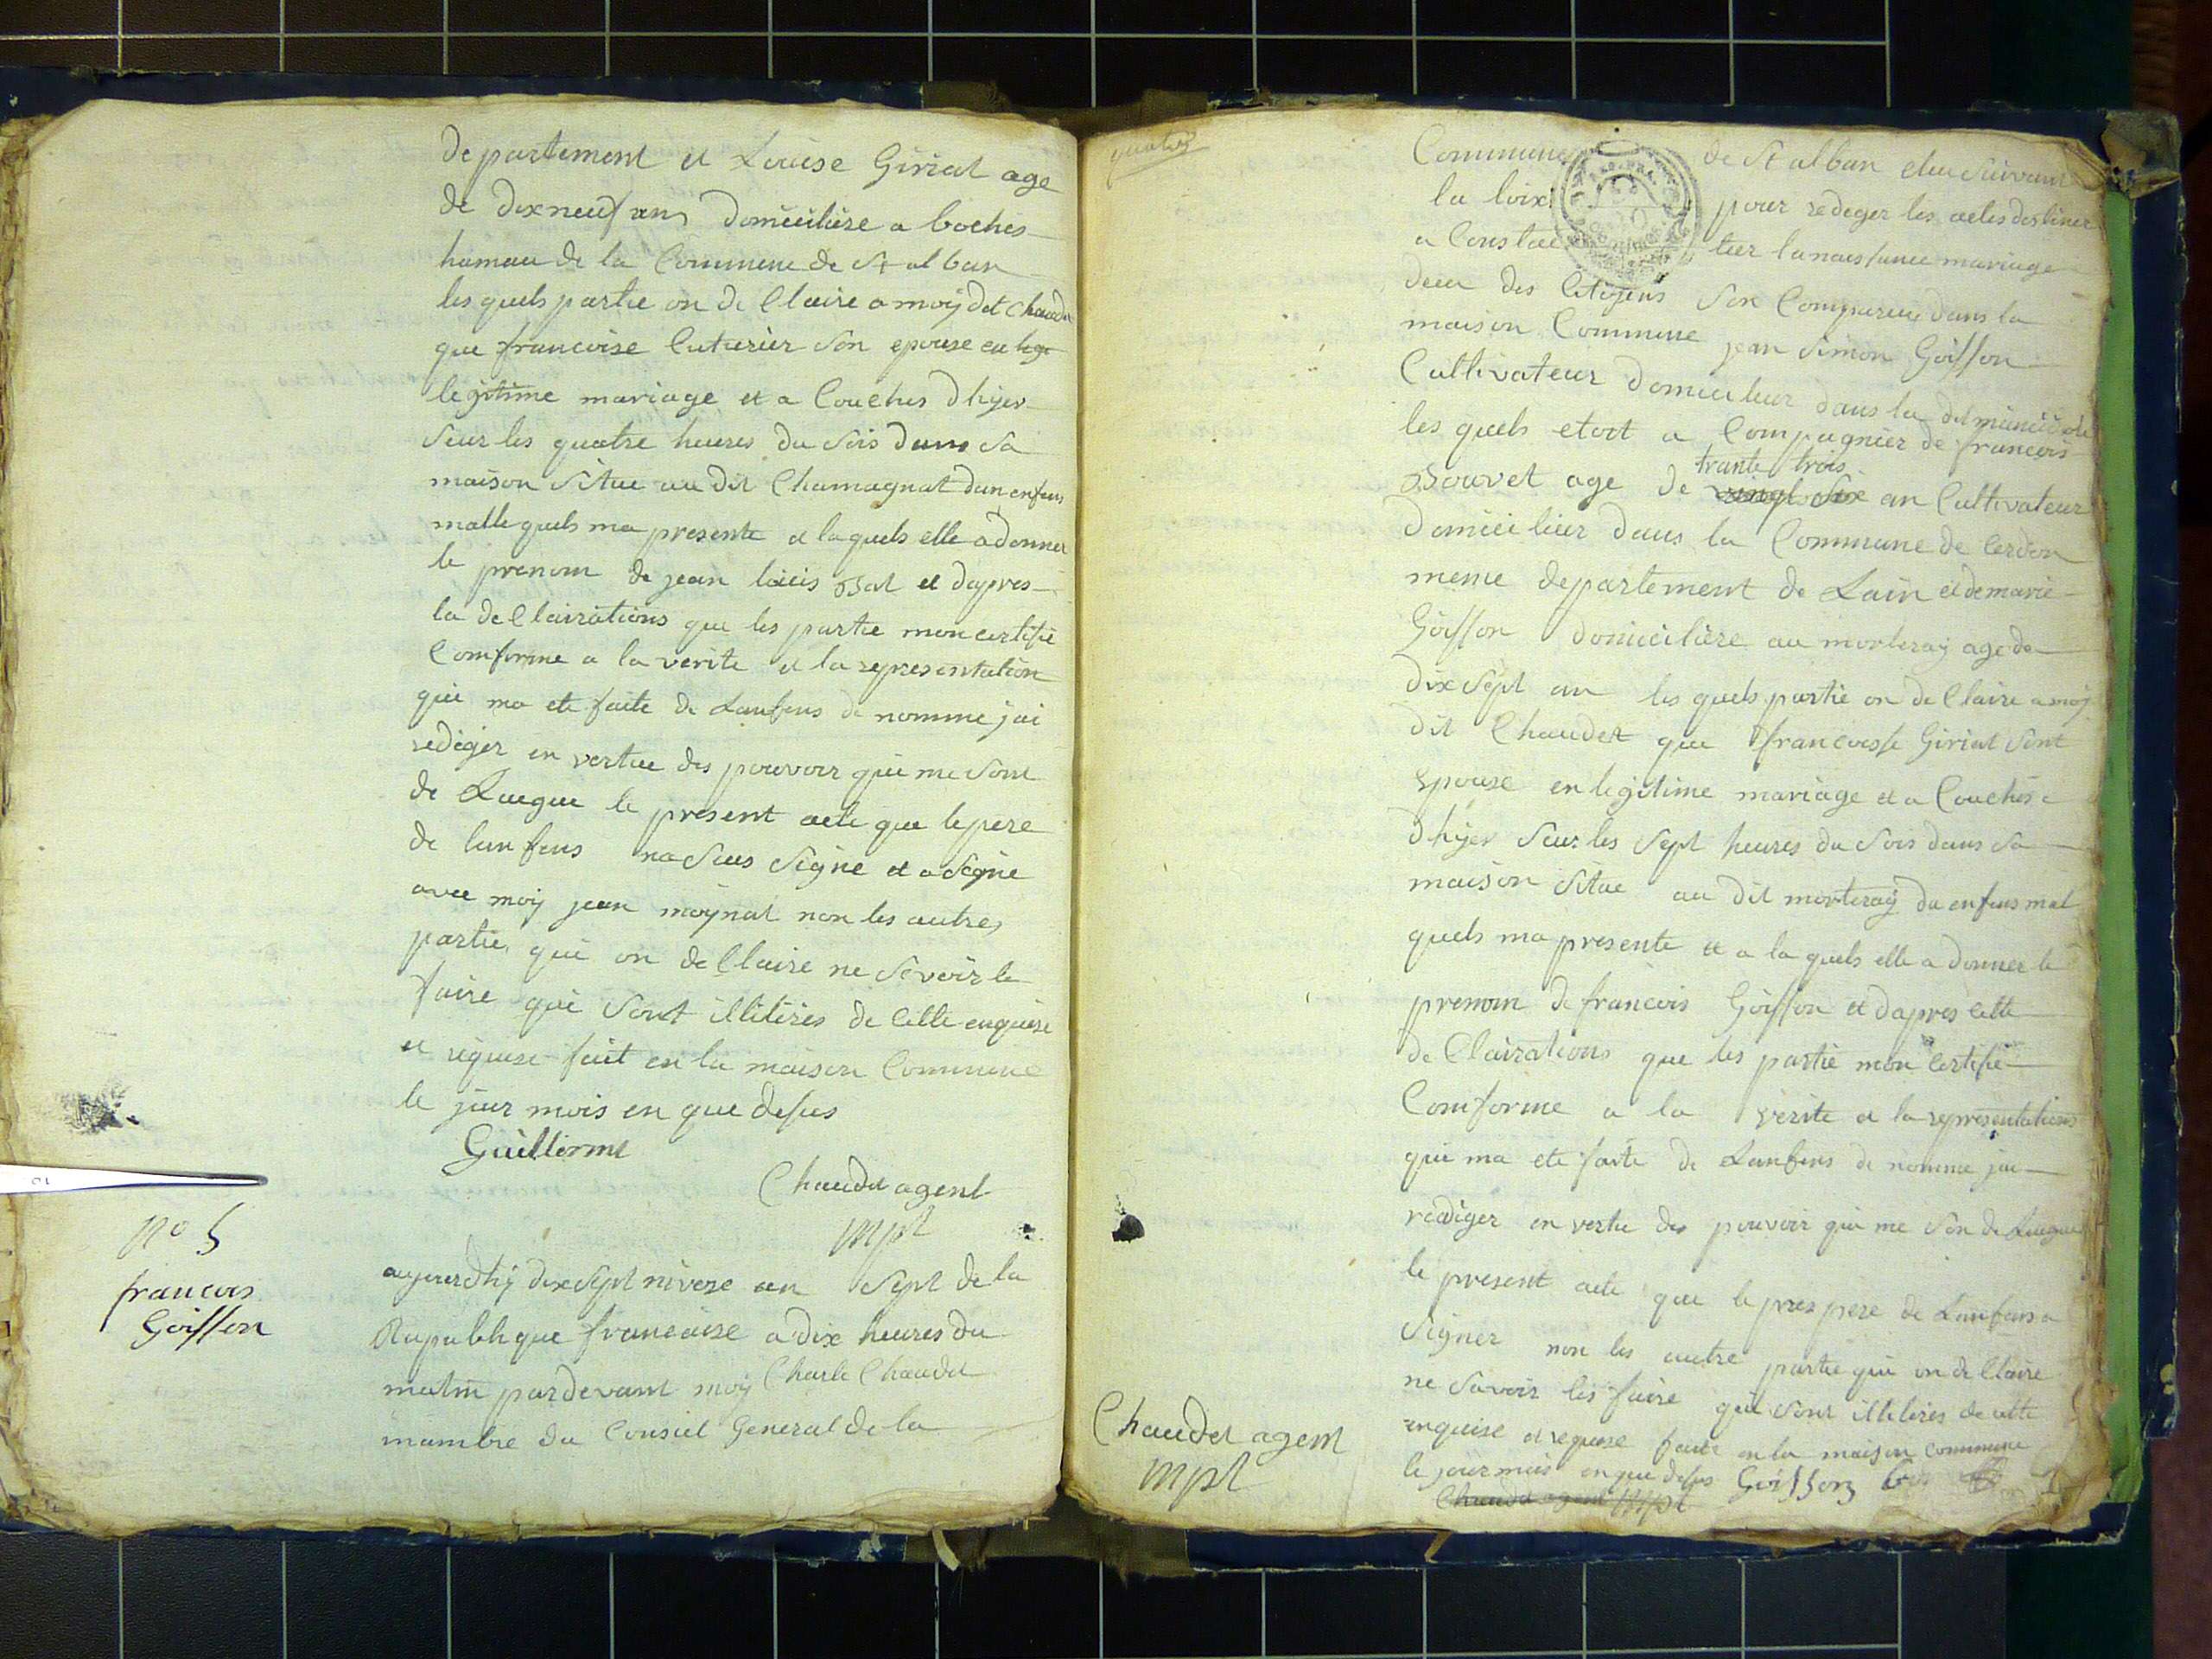 departement et Louise Giriat age
de dix neuf ans domicilière a boches
hamau de la Commune de St alban
les quels partie on de Claire a moÿ dit Chaudet
que francoise Cuturier son epouse en leg
legitime mariage et a Couches dhÿer
seur les quatre heures du sois dans sa
maison situe au dit Chamagnat dun enfens
malle quels ma presente et la quels elle a donner
le prenom de jean louis Bal et dapres
la de Clairations que les partie mon certifie
Comforme a la verite et la representation
qui ma ete faite de Lanfens de nomme jai
rediger en vertue des pouvoir qui me sont
de Luegue le present acte que le pere
de lenfens na seus signe et a signe
avec moÿ jean moÿnat non les autres
partie qui on de Claire ne sevoir le
faire qui sont illiteres de Cette enquise
et requise fait en la maison Commune
le jour mois en que desus
Guillerme
Chaudet agent
mpl
no 5
francois
Goisson
aujourdhÿ dix sept nivose an sept de la
Republique francaise a dix heures du
matin pardevant moÿ Charle Chaudet
mambre du Conseil General de la
quatre
Commune de St alban elue suivant
la loix pour rediger les actes destiner
a Constac ter la naissance mariage
deces des Citoÿens son Comparue dans la
maison Commune jean simon Goisson
Cultivateur domicilier dans la dit
les quels etoit a Compagnier de francois
Bouvet age de vingt six an Cultivateur
trante trois
domicilier dans la Commune de Cerdon
meme departement de Lain et de marie
Goisson domicilière au morteraÿ age de
dix sept an les quels partie on de Claire a moÿ
dit Chaudet que francoise Giriat sont
epouse en legitime mariage et a Couches
dhÿer seur les sept heures du sois dans sa
maison situe au dit morteraÿ du enfens mal
quels ma presente et a la quels elle a donner le
prenom de francois Goisson et dapres cette
de Clairations que les partie mon certifie
Comforme a la verite et la representations
qui ma ete faite de Lanfens de nomme jai
rediger en vertu des pouvoir qui me son de Luegue
le present acte que le pere de Lanfens a
signer non les autre partie qui on de Claire
ne savoir les faire qui sont illiteres de cette
enquise et requise faite en la maison commune
le jour mois en que desus Goisson
Chaudet agent mpl
Chaudet agent
mpl